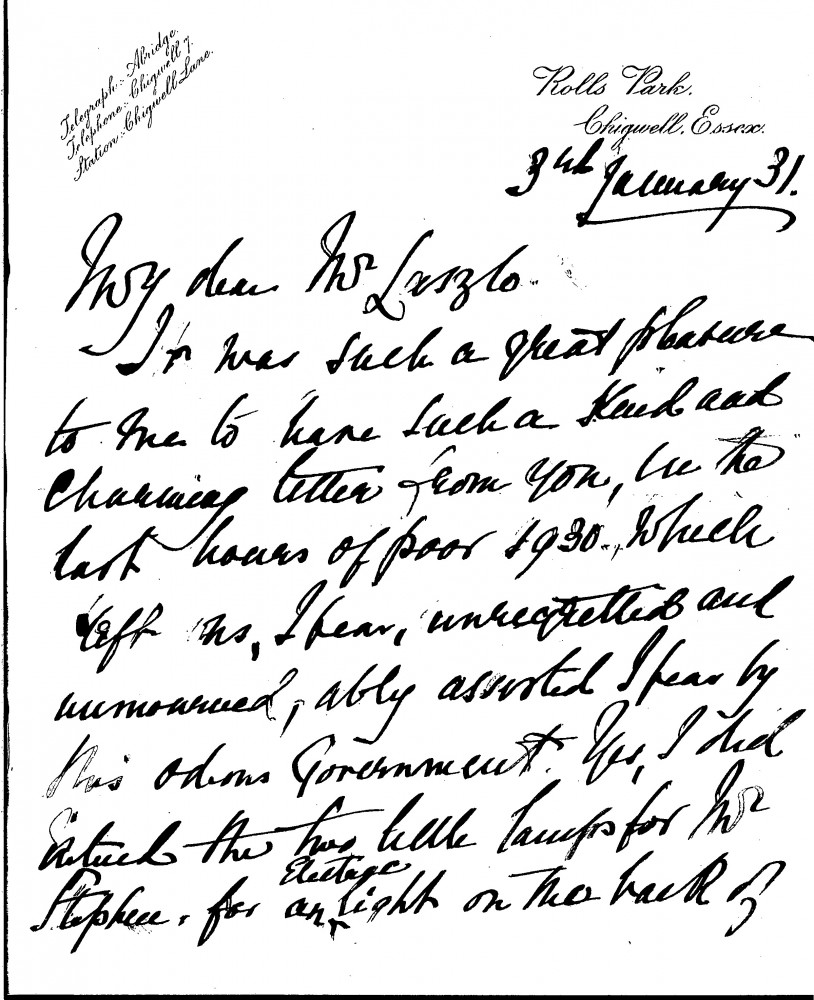 Telegraph:- Abridge.
Telephone:- Chigwell 7.
Station:- Chigwell Lane.
Rolls Park.
Chigwell, Essex.
3rd January 31.
My dear Mr Laszlo.
It was such a great pleasure
to me to have such a kind and
charming letter from you, in the
last hours of poor 1930. Which
left us, I fear, unregretted and
unmourned, ably assisted I fear by
this odious Government. Yes, I did
intend the two little lamps for Mr
Stephen. for an Electric light on the back of